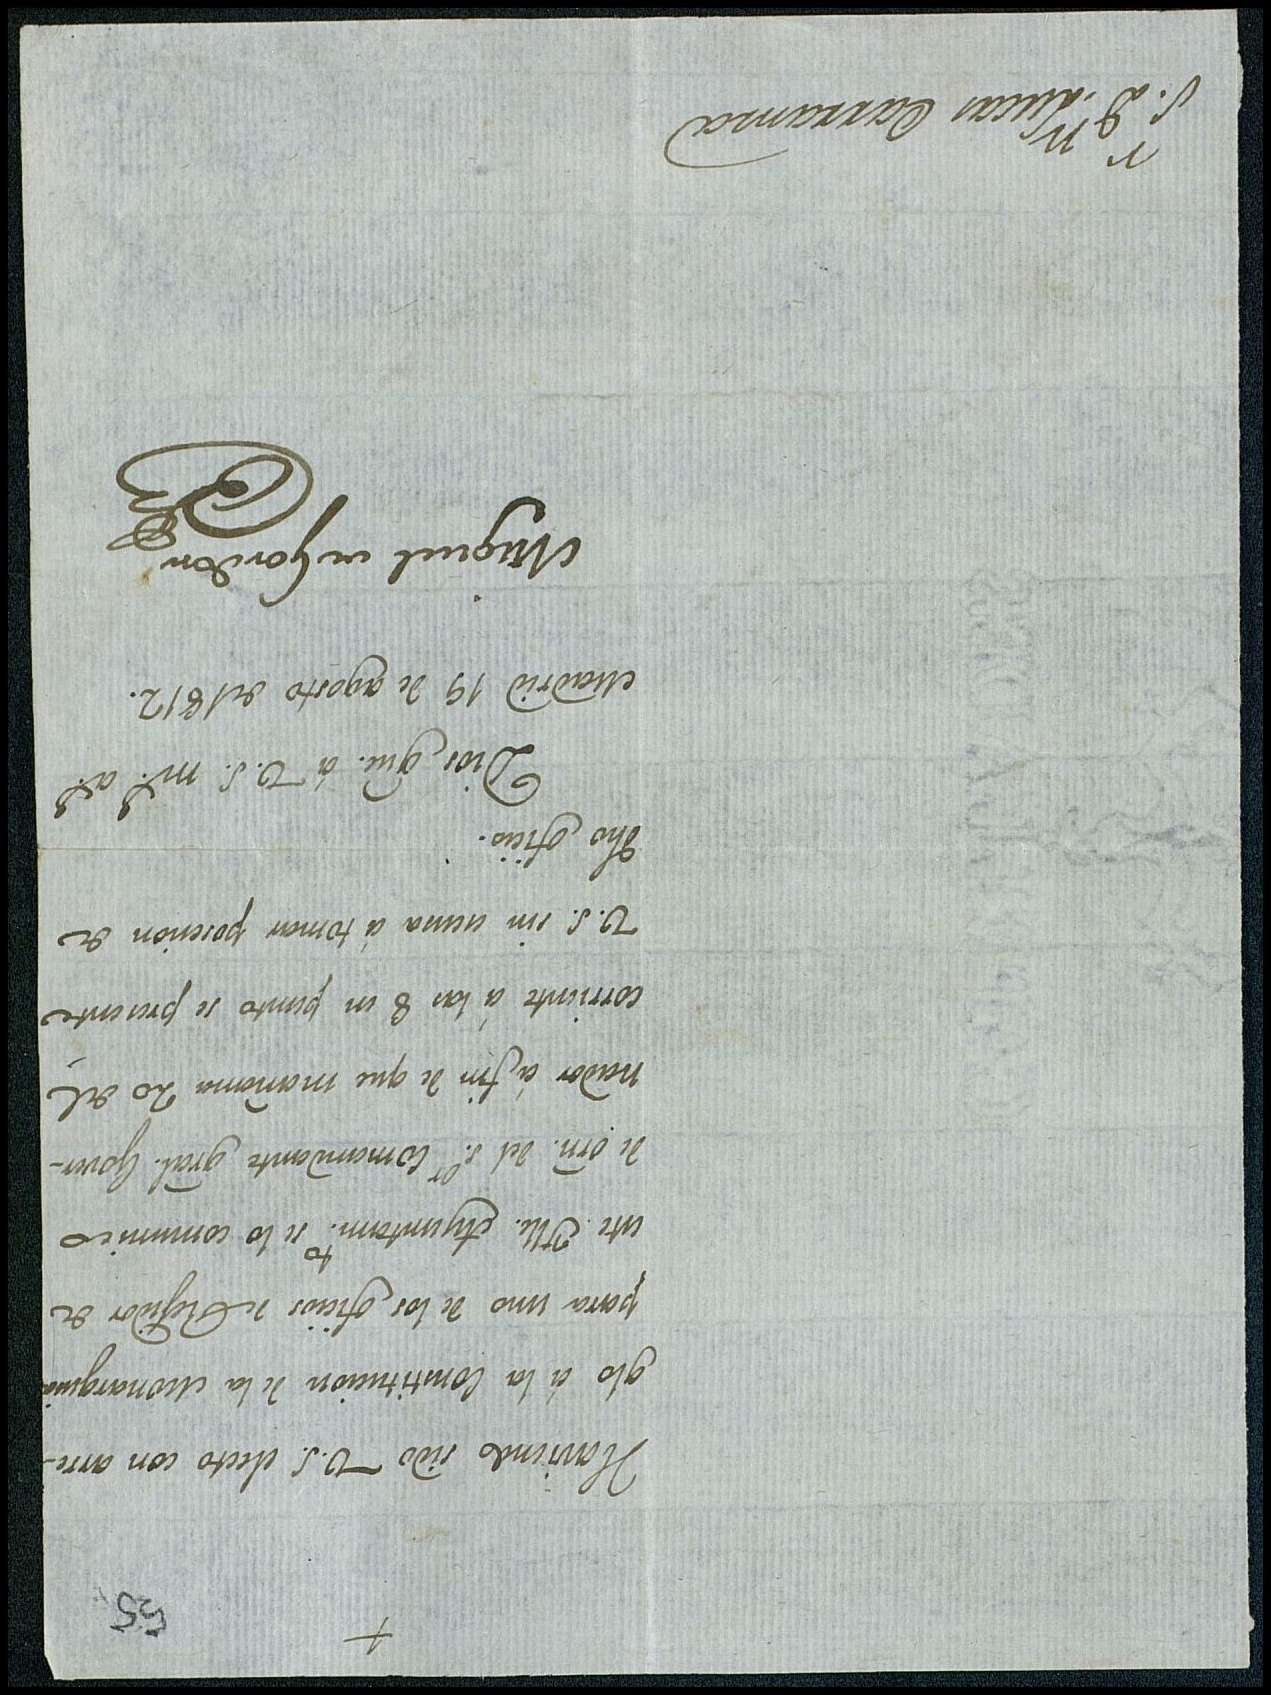 55
+
Haviendo sido V.S. electo con arre-
glo á la Constitucion de la Monarquia
para uno de los oficios de Regidor de
este Ille. Ayuntam.to se lo comunico
de orn. del S.or Comandante gral. Gover-
nador á fin de que mañana 20 del
corriente á las 8 en punto se presente
V.S. sin escusa á tomar posesion de
dho oficio.
Dios gue. á V.S. ms. as.
Madrid 19 de agosto de 1812.
Miguel de Gordon
S.r D.n Lucas Carranza